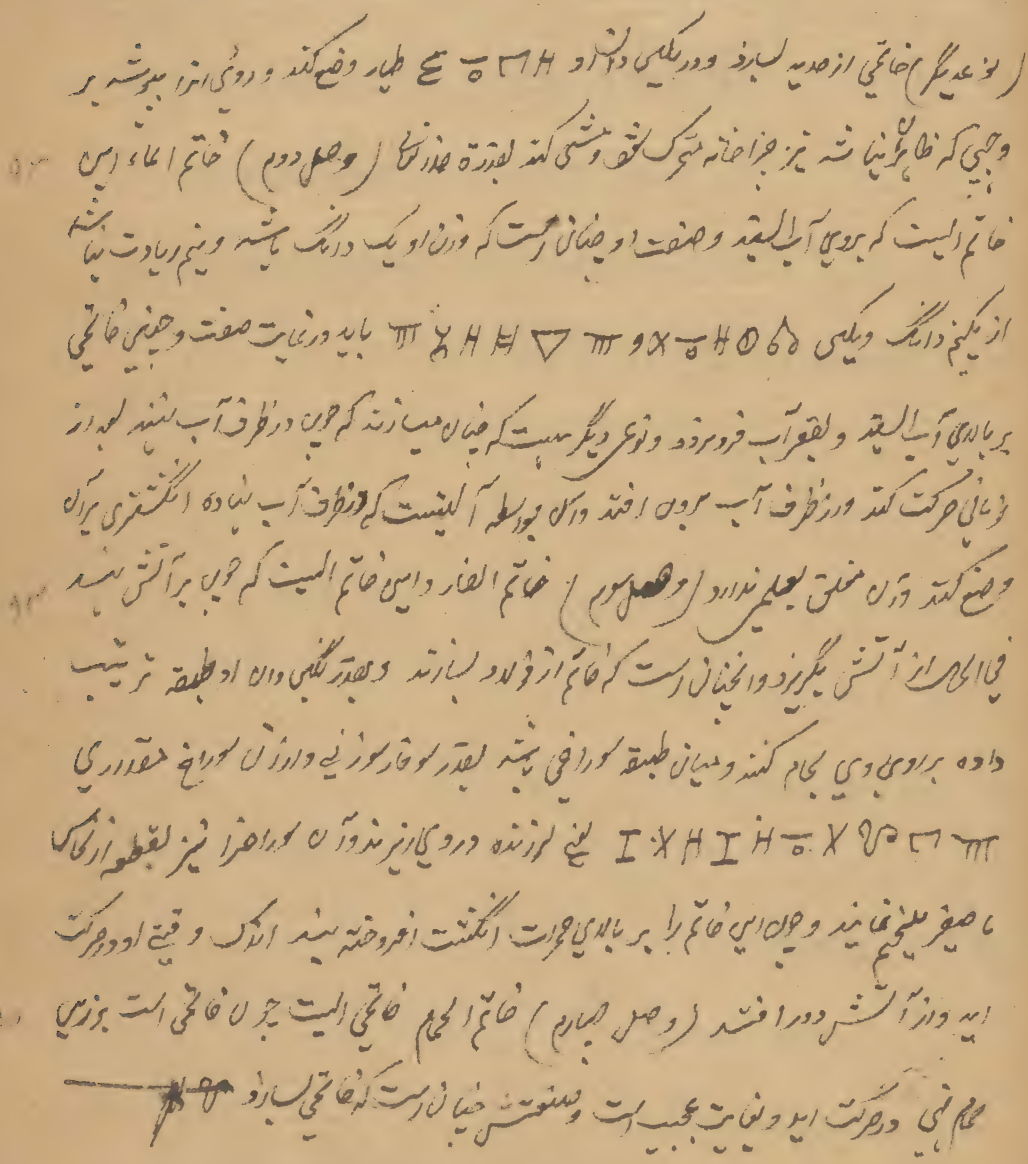 (نوعدیگر) خاتمی از حدید بسازد و در نگین دان او طیار وضع کند و روی انرا بپوشد بر
وجهی که ظاهر نباشد نیز جزا خانه متحرک شود مشی کند بقدرة (وصل دوم) خاتم الماء این
خاتم الیست که بروی آب ایستد و صنعت او چنان است که وزن او یک دانگ باشد و نیم زیادت نباشد
از یکنیم دانگ و نگین باید در غایت صفت و چنین خاتمی
بر بالای آب ایستد و بقعر آب فرو نرود و نوعی دیگر هست که چنان میسازند که چون در ظرف آب نهند بعد از
زمانی حرکت کند و از ظرف آب بیرون افتد و ان بواسطه آلتیست که در ظرف آب نهاده انگشتری بران
وضع کنند و آن تعلق بعلمی ندارد (وصل سوم) خاتم النار و این خاتم الیست که چون بر آتش نهند
فی الحال از آتش بگریزد و انچنان است که خاتم از فولاد بسازند و بقدر نگین دان او طبقه ترتیب
داده بر روی وی لحام کنند و میان طبقه سوراخی باشد بقدر سوفار سوزنی و از آن سوراخ مقداری
یعنی در وی ریزند و آن سوراخرا نیز بقطعه از نحاس
یا صفر نمایند و چون این خاتم را بر بالای جمرات انگشت افروخته نهند اندک وقتی او در حرکت
اید و از آتش دور افتد (وصل چهارم) خاتم الحمام خاتمی الیست چون خاتمی است بر زمین
حمام نهی در حرکت اید و بغایت عجیب است و صنعتش چنان است که خاتمی بسازد